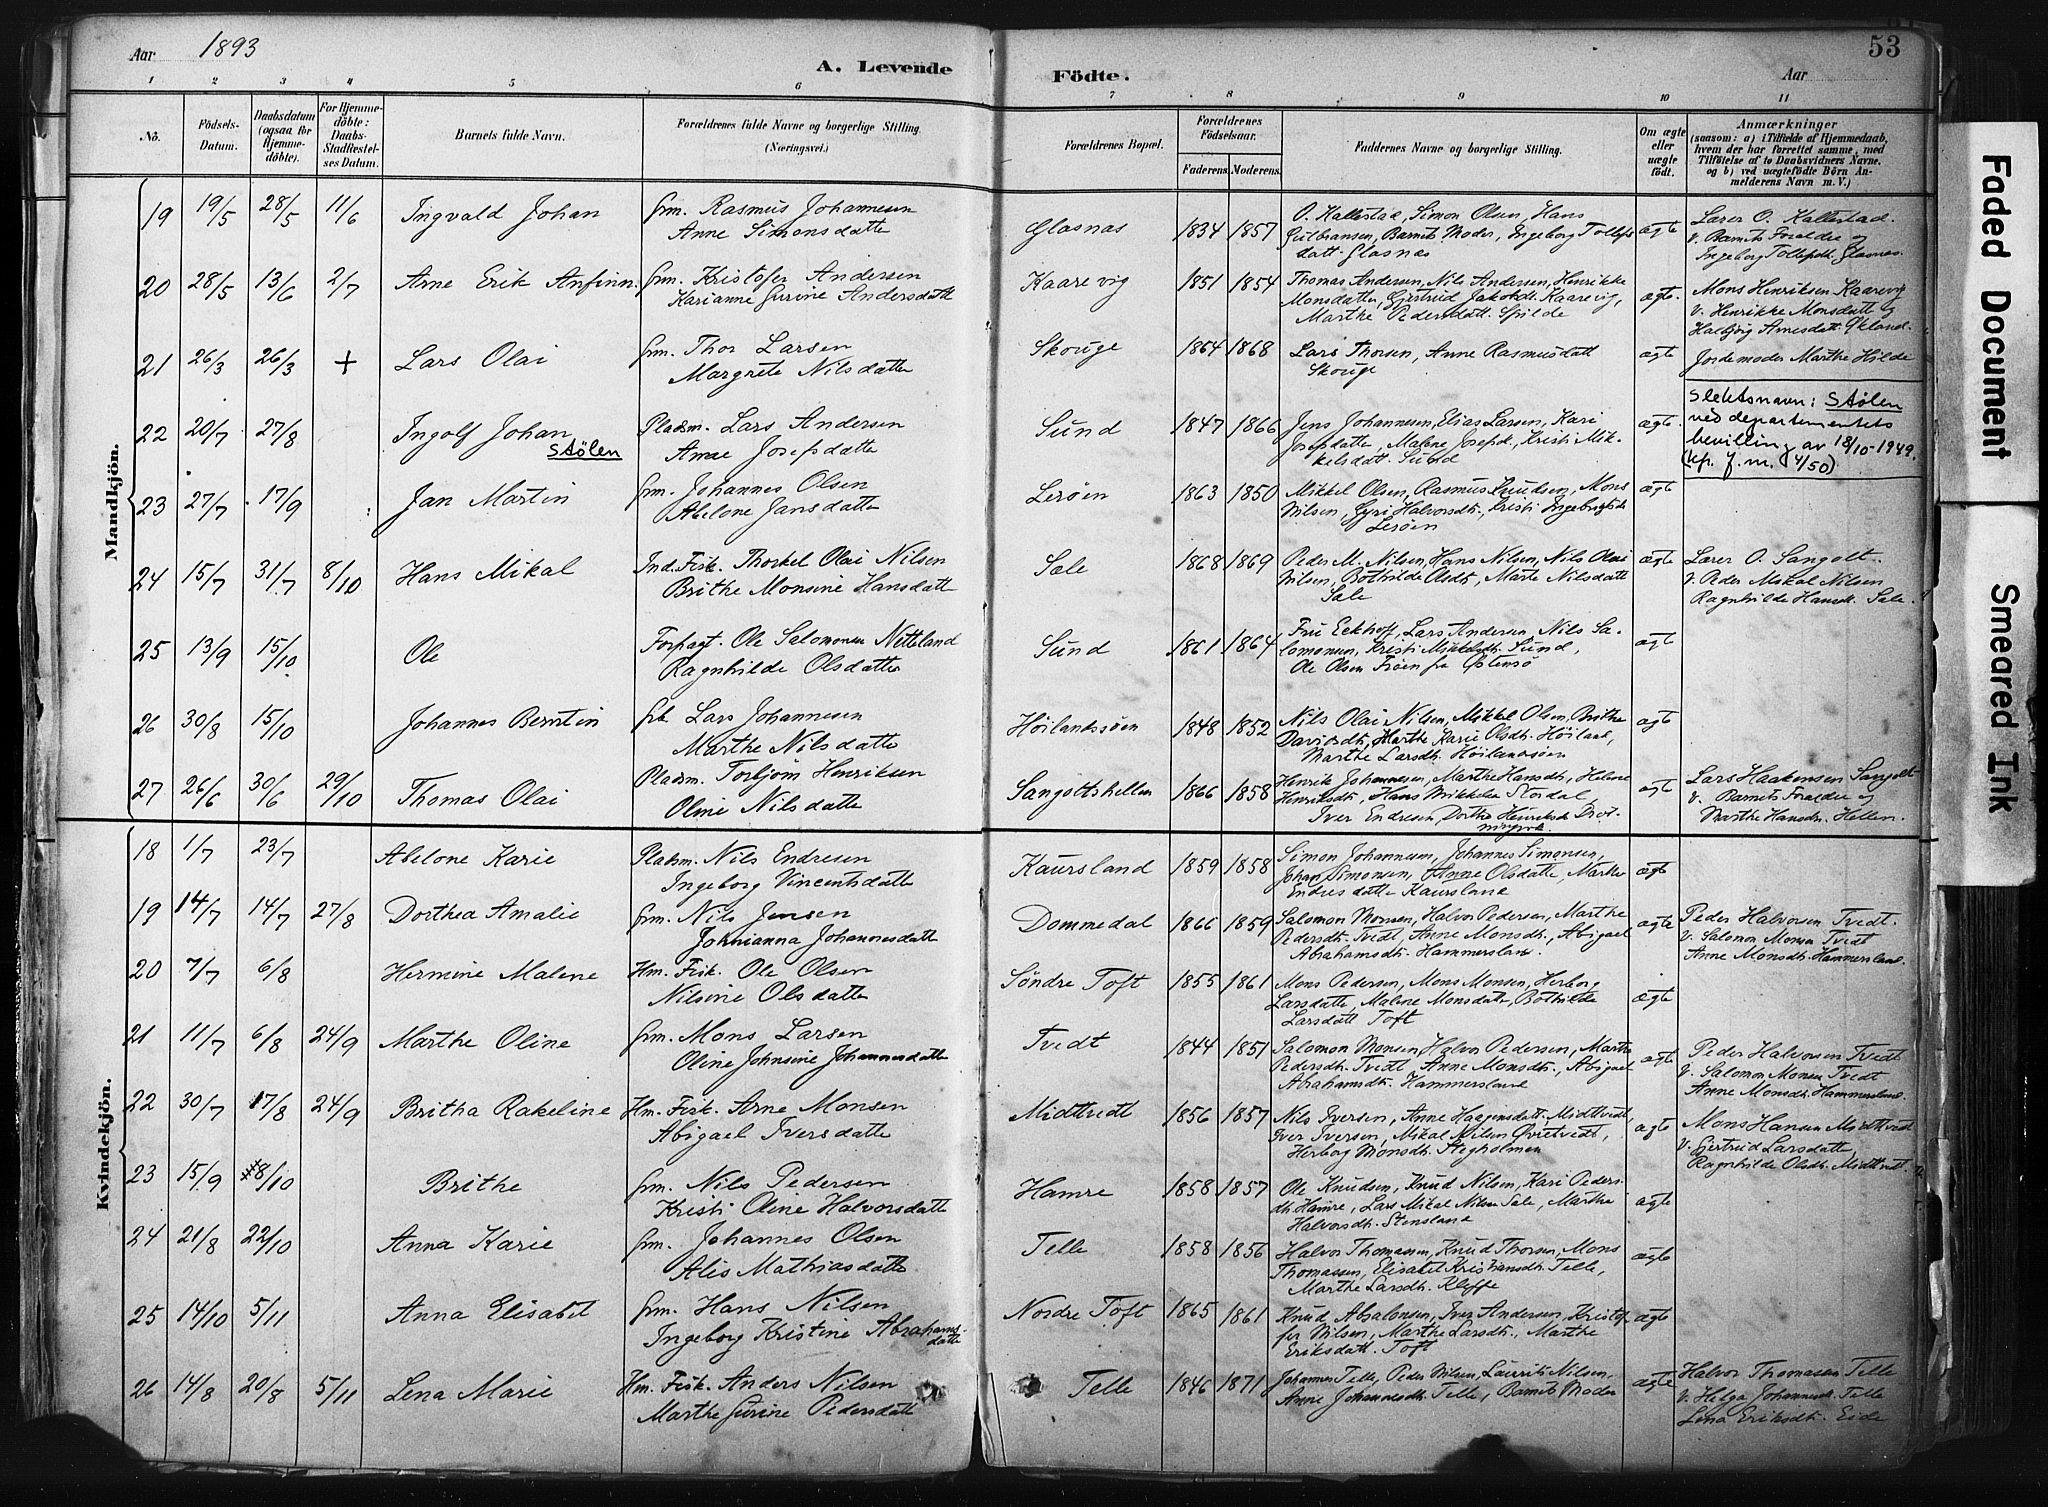 Aar 1893
A. Levende
Födte.
Aar
53
1 2 3 4 5 6 7 8 9 10 11
Nö.
Födsels-Datum.
Daabsdatum (ogsaa för Hjemme-döbte).
For Hjemme-döbte: Daabs-Stadfæstel-ses Datum.
Barnets fulde Navn.
Forældrenes fulde Navne og borgerlige Stilling.
(Næringsvei.)
Forældrenes Bopæl.
Forældrenes Födselsaar.
Faderens. Moderens.
Faddernes Navne og borgerlige Stilling.
Om ægte eller uægte födt.
Anmærkninger
(saasom: a) i Tilfælde af Hjemmedaab,
hvem der har forrettet samme, med
Tilföielse af to Daabsvidners Navne.
og b) ved uægtefödte Börn An-
melderens Navn m. V.)
Mandkjön.
19 19/5 28/5 11/6 Ingvald Johan Grm. Rasmus Johannesen
Anne Simonsdatter
Glasnas 1834 1857 O. Kallestad, Simon Olsen, Hans
Gulbransen, Barnets Moder, Ingeborg Tollefs
datt. Glasnas
ægte Lærer O. Kallestad.
v. Barnets Foraldre og
Ingeborg Tollefsdt. Glasnas.
20 28/5 13/6 2/7 Arne Erik Anfinn. Grm. Kristofer Andersen
Karianne Gurine Andersdatt
Kaarevig 1851 1854 Thomas Andersen, Nils Andersen, Henrikke
Monsdatter, Gjertrud Jakobsdt. Kaarevig,
Marthe Pedersdatt. Spilde
ægte. Mons Henriksen Kaarevig
v. Henrikke Monsdatt og
Halbjörg Arnesdatt. Økland.
21 26/3 26/3 + Lars Olai Grm. Thor Larsen
Margrete Nilsdatter
Skouge 1864 1868 Lars Thorsen, Anne Rasmusdatt
Skouge
ægte Jordemoder Marthe Hilde
22 20/7 27/8 Ingolf Johan
Stølen
Pladsm. Lars Andersen
Anne Josefsdatter
Sund 1847 1866 Jens Johannesen, Elias Larsen, Kari
Josefsdatter, Malene Josefsdt., Kristi Mik-
kelsdatt. Sund
ægte Slektsnavn: Stølen
ved departementets
bevilling av 18/10-1949.
(kfr. J. nr. 4/50)
23 27/7 17/9 Jan Martin Grm. Johannes Olsen
Abelone Jansdatter
Lerøen 1863 1850 Mikkel Olsen, Rasmus Knudsen, Mons
Nilsen, Gyri Halvorsdt., Kristi Ingebrigtsdt.
Lerøen
ægte
24 15/7 31/7 8/10 Hans Mikal Ind. Fisk. Thorkel Olai Nilsen
Brithe Monsine Hansdatter
Sale 1868 1869 Peder M. Nilsen, Hans Nilsen, Nils Olai
Nilsen, Bothilde Olsdt., Marte Nilsdatter
Sale
ægte Lærer O. Sangolt.
v. Peder Mikal Nilsen
Ragnhilde Hansdt. Sale.
25 13/9 15/10 Ole Forpagt. Ole Salomonsen Netteland
Ragnhilde Olsdatter
Sund 1861 1864 Fru Eckhoff, Lars Andersen, Nils Sa-
lomonsen, Kristi Mikkelsdt. Sund,
Ole Olsen Frøen fra Østensø
ægt
26 30/8 15/10 Johannes Berntin Grb. Lars Johannesen
Marthe Nilsdatter
Høilandssøen 1848 1852 Nils Olai Nilsen, Mikkel Olsen, Brithe
Davidsdt., Marthe Karie Olsdt. Høiland,
Marthe Larsdt. Høilandsøen
ægte
27 26/6 30/6 29/10 Thomas Olai Pladsm. Torbjørn Henriksen
Oline Nilsdatter
Sangoltshellen 1866 1858 Henrik Johannesen, Marthe Hansdt., Helene
Henriksdt., Hans Mikkelsen Stordal
Iver Endresen, Dorthe Henriksdt. Drot-
ningsvik.
ægt Lars Haakensen Sangolt
v. Barnets Foraldre og
Marthe Hansdt. Hellen.
Kvindekjön.
18 1/7 23/7 Abelone Karie Pladsm. Nils Endresen
Ingeborg Vincentsdatter
Kaursland 1859 1858 Simon Johannesen, Johannes Simonsen,
Johan Simonsen, Anne Olsdatter, Marthe
Endresdatter Kaursland
ægt
19 14/7 14/7 27/8 Dorthea Amalie Grm. Nils Jensen
Johnianna Johannesdatter
Dommedal 1866 1859 Salomon Monsen, Halvor Pedersen, Marthe
Pedersdt. Tvedt, Anne Monsdt., Abigael
Abrahamsdt. Hammersland.
ægte Peder Halvorsen Tvedt.
v. Salomon Monsen Tvedt
Anne Monsdt. Hammersland.
20 7/7 6/8 Hermine Malene Hm. Fisk. Ole Olsen
Nilsine Olsdatter
Søndre Toft 1855 1861 Mons Pedersen, Mons Monsen, Herborg
Larsdatter, Malene Monsdatter, Bothilde
Larsdatt Toft
ægte
21 11/7 6/8 24/9 Marthe Oline Grm. Mons Larsen
Oline Johnsine Johannesdatter
Tvedt 1844 1851 Salomon Monsen, Halvor Pedersen, Marthe
Pedersdt. Tvedt, Anne Monsdt., Abigael
Abrahamsdt. Hammersland
ægt Peder Halvorsen Tvedt
v. Salomon Monsen Tvedt
Anne Monsdt. Hammersland.
22 30/7 17/8 24/9 Britha Rakeline Hm. Fisk. Arne Monsen
Abigael Iversdatter
Midttvedt 1856 1857 Nils Iversen, Anne Haagensdatt. Midttvedt,
Iver Iversen, Mikal Nilsen Øvretvedt,
Herborg Monsdt. Stegholmen
ægte Mons Hansen Midttvedt
v. Gjertrud Larsdatter,
Ragnhilde Olsdt. Midttvedt.
23 15/9 8/10 Brithe Grm. Nils Pedersen
Kristi Oline Halvorsdatter
Hamre 1858 1857 Ole Knudsen, Knud Nilsen, Kari Peders-
dt. Hamre, Lars Mikal Nilsen Sale, Marthe
Halvorsdt. Stensland
ægte
24 21/8 22/10 Anna Karie Grm. Johannes Olsen
Alis Mathiasdatter
Telle 1858 1856 Halvor Thomassen, Knud Thorsen, Mons
Thomassen, Elisabet Kristiansdt. Telle,
Marthe Larsdt. Kleppe
ægte
25 14/10 5/11 Anna Elisabet Grm. Hans Nilsen
Ingeborg Kristine Abrahams-
datter
Nordre Toft 1865 1861 Knud Absalonsen, Iver Andersen, Kristof-
fer Nilsen, Marthe Larsdt., Marthe
Eriksdatt. Toft
ægte
26 14/8 20/8 5/11 Lena Marie Hm. Fisk. Anders Nilsen
Marthe Gurine Pedersdatter
Telle 1846 1871 Johannes Telle, Peder Nilsen, Laurits Nilsen,
Anne Johannesdt. Telle, Barnets Moder
ægte Halvor Thomassen Telle
v. Helga Johannesdt. Telle
Lena Eriksdt. Eide
Faded Document
Smeared Ink